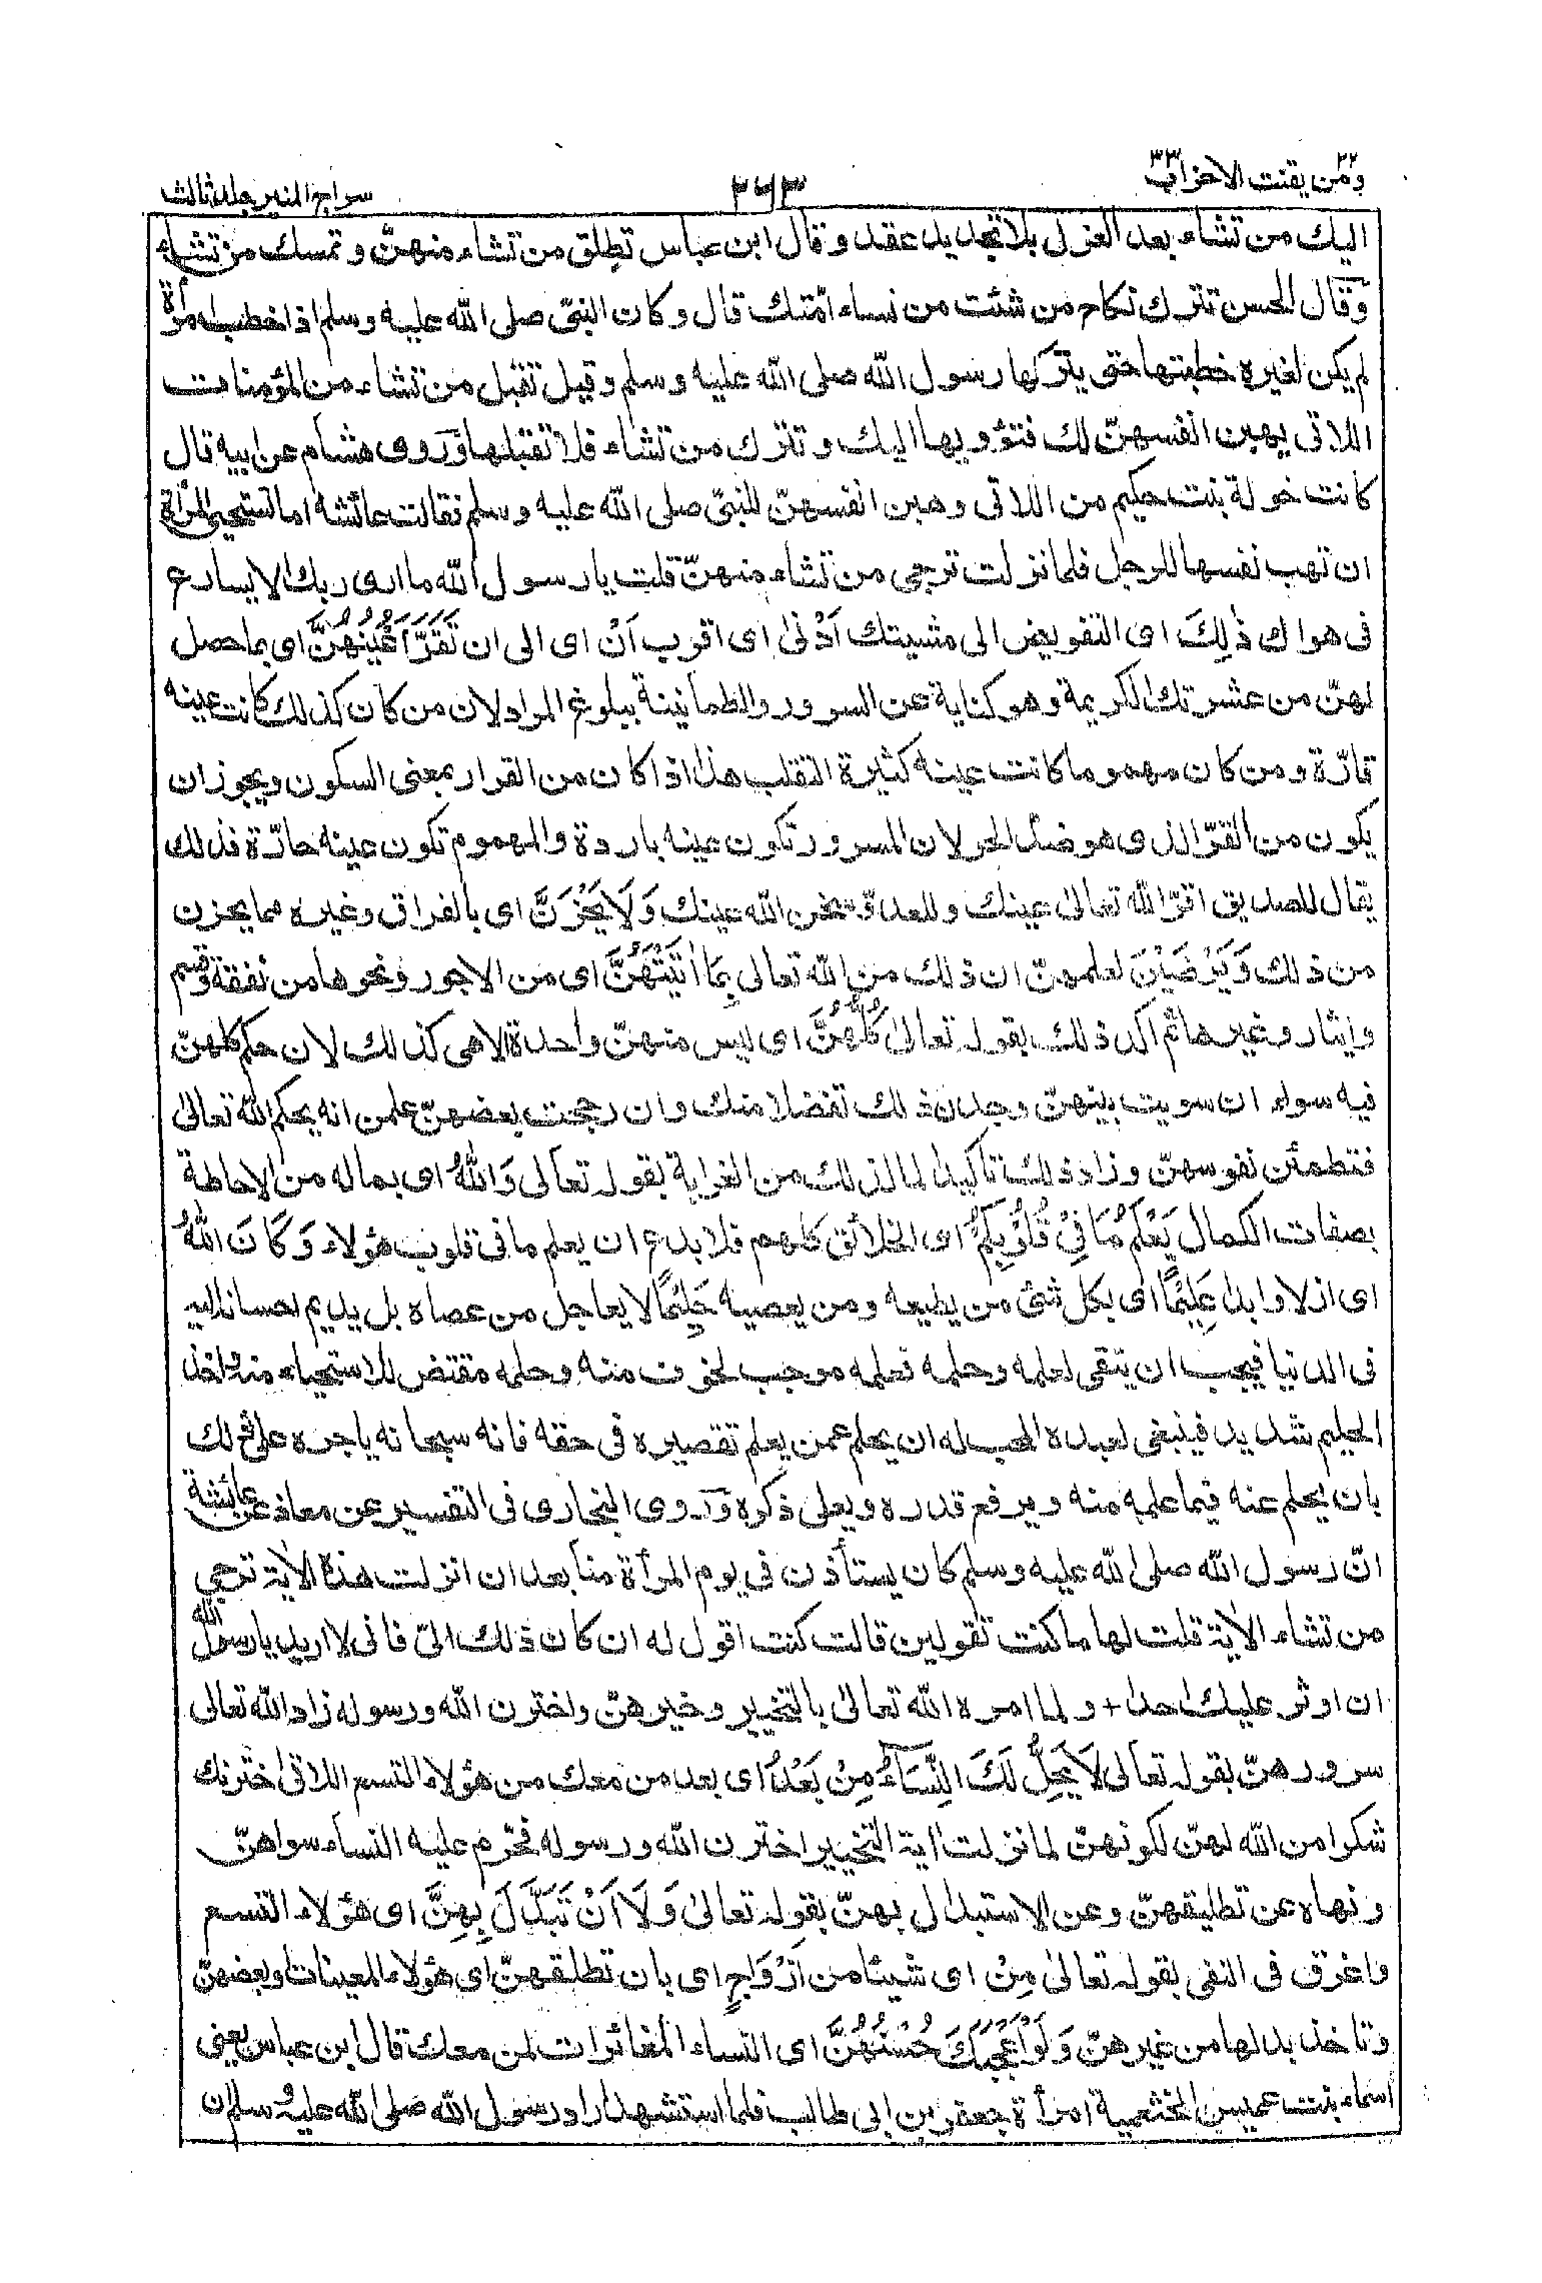 ومن يقنت ٢٢ الاحزاب ٣٣
٢٦٣
سراج المنير جلد ثالث
اليك من تشاء بعد العزل بلا تجديد عقد وقال ابن عباس تطلق من تشاء منهنّ وتمسك من تشاء
وقال الحسن تترك نكاح من شئت من نساء امّتك قال وكان النبىّ صلى الله عليه وسلم اذا خطب امرأة
لم يكن لغيره خطبتها حتى يتركها رسول الله صلى الله عليه وسلم وقيل تقبل من تشاء من المؤمنات
اللاتى يهبن انفسهنّ لك فتؤويها اليك وتترك من تشاء فلا تقبلها وروى هشام عن ابيه قال
كانت خولة بنت حكيم من اللاتى وهبن انفسهنّ للنبىّ صلى الله عليه وسلم فقالت عائشة اما تستحيى المرأة
ان تهب نفسها للرجل فلما نزلت ترجى من تشاء منهنّ قلت يا رسول الله ما ارى ربك الا يسارع
فى هواك ذٰلِكَ اى التفويض الى مشيتك اَدْنٰى اى اقرب اَنْ اى الى ان تَقَرَّ اَعْيُنُهُنَّ اى بما حصل
لهنّ من عشرتك الكريمة وهو كناية عن السرور والطمأنينة ببلوغ المراد لان من كان كذلك كانت عينه
قارّة ومن كان مهموما كانت عينه كثيرة التقلب هذا اذا كان من القرار بمعنى السكون ويجوز ان
يكون من القرّ الذى هو ضدّ الحر لان المسرور تكون عينه باردة والمهموم تكون عينه حارّة فلذلك
يقال للصديق اقرّ الله تعالى عينك وللعدوّ سخن الله عينك وَلَا يَحْزَنَّ اى بالفراق وغيره مما يحزن
من ذلك وَيَرْضَيْنَ لعلمهنّ ان ذلك من الله تعالى بِمَا اٰتَيْتَهُنَّ اى من الاجور ونحوها من نفقة وقسم
وايثار وغيرها ثم اكد ذلك بقوله تعالى كُلُّهُنَّ اى ليس منهنّ واحدة الا هى كذلك لان حكم كلهنّ
فيه سواء ان سويت بينهنّ وجدن ذلك تفضلا منك وان رجحت بعضهنّ علمن انه بحكم الله تعالى
فتطمئن نفوسهنّ وزاد ذلك تأكيدا لما لذلك من الغرابة بقوله تعالى وَاللهُ اى بما له من الاحاطة
بصفات الكمال يَعْلَمُ مَا فِىْ قُلُوْبِكُمْ اى الخلائق كلهم فلا بدع ان يعلم ما فى قلوب هؤلاء وَكَانَ اللهُ
اى ازلا وابدا عَلِيْمًا اى بكل شئ من يطيعه ومن يعصيه حَلِيْمًا لا يعاجل من عصاه بل يديم احسانه اليه
فى الدنيا فيجب ان يتقى لعلمه وحلمه فعلمه موجب لخوف منه وحلمه مقتض للاستحياء منه واخذ
الحليم شديد فينبغى لعبده المحب له ان يحلم عمن يعلم تقصيره فى حقه فانه سبحانه ياجره على ذلك
بان يحلم عنه فيما علمه منه ويرفع قدره ويعلى ذكره وروى البخارى فى التفسير عن معاذ عن عائشة
انّ رسول الله صلى الله عليه وسلم كان يستأذن فى يوم المرأة منا بعد ان انزلت هذه الاية ترجى
من تشاء الاية قلت لها ما كنت تقولين قالت كنت اقول له ان كان ذلك الىّ فانى لا اريد يا رسول الله
ان اوثر عليك احدا + ولما امره الله تعالى بالتخيير وخيرهنّ واخترن الله ورسوله زاد الله تعالى
سرورهنّ بقوله تعالى لَا يَحِلُّ لَكَ النِّسَاءُ مِنْ بَعْدُ اى بعد من معك من هؤلاء التسع اللاتى اخترنك
شكرا من الله لهنّ لكونهنّ لما نزلت اية التخيير اخترن الله ورسوله فحرّم عليه النساء سواهنّ
ونهاه عن تطليقهنّ وعن الاستبدال بهنّ بقوله تعالى وَلَا اَنْ تَبَدَّلَ بِهِنَّ اى هؤلاء التسع
واغرق فى النفى بقوله تعالى مِنْ اى شيئا من اَزْوَاجٍ اى بان تطلقهنّ اى هؤلاء المعينات وبعضهنّ
وتاخذ بدلها من غيرهنّ وَلَوْ اَعْجَبَكَ حُسْنُهُنَّ اى النساء المغائرات لمن معك قال ابن عباس يعنى
اسماء بنت عميس الخثعمية امرأة جعفر بن ابى طالب فلما استشهد اراد رسول الله صلى الله عليه وسلم ان